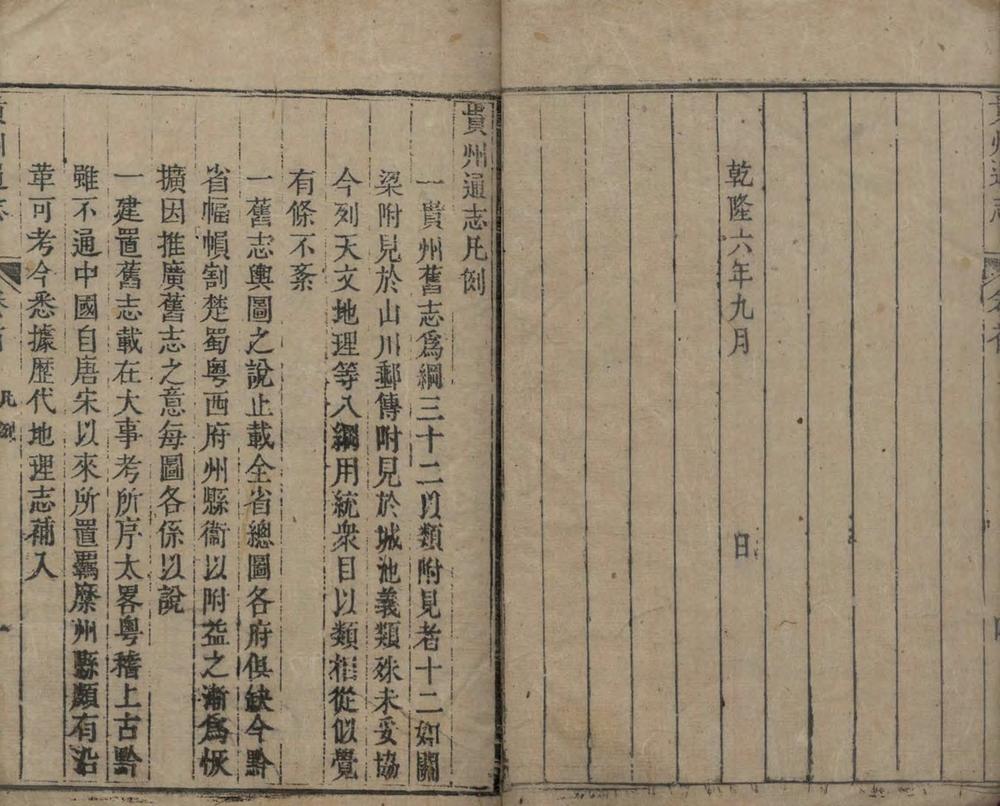 貴州通志
乾隆六年九月　　日
貴州通志凡例
一貴州舊志爲綱三十二以類附見者十二如關
梁附見於山川郵傳附見於城池義類殊未妥協
今列天文地理等八綱用統衆目以類相從似覺
有條不紊
一舊志輿圖之說止載全省總圖各府俱缺今黔
省幅幀割楚蜀粤西府州縣衞以附益之漸爲恢
擴因推廣舊志之意每圖各係以說
一建置舊志載在大事考所序太畧粤稽上古黔
雖不通中國自唐宋以來所置羈縻州縣頗有沿
革可考今悉據歷代地理志補入
貴州通志
凡例
一